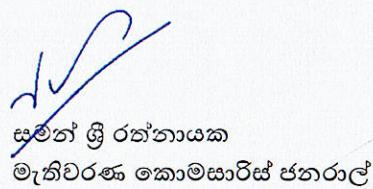 සමන් ශ්‍රී රත්නායක
මැතිවරණ කොමසාරිස් ජනරාල්